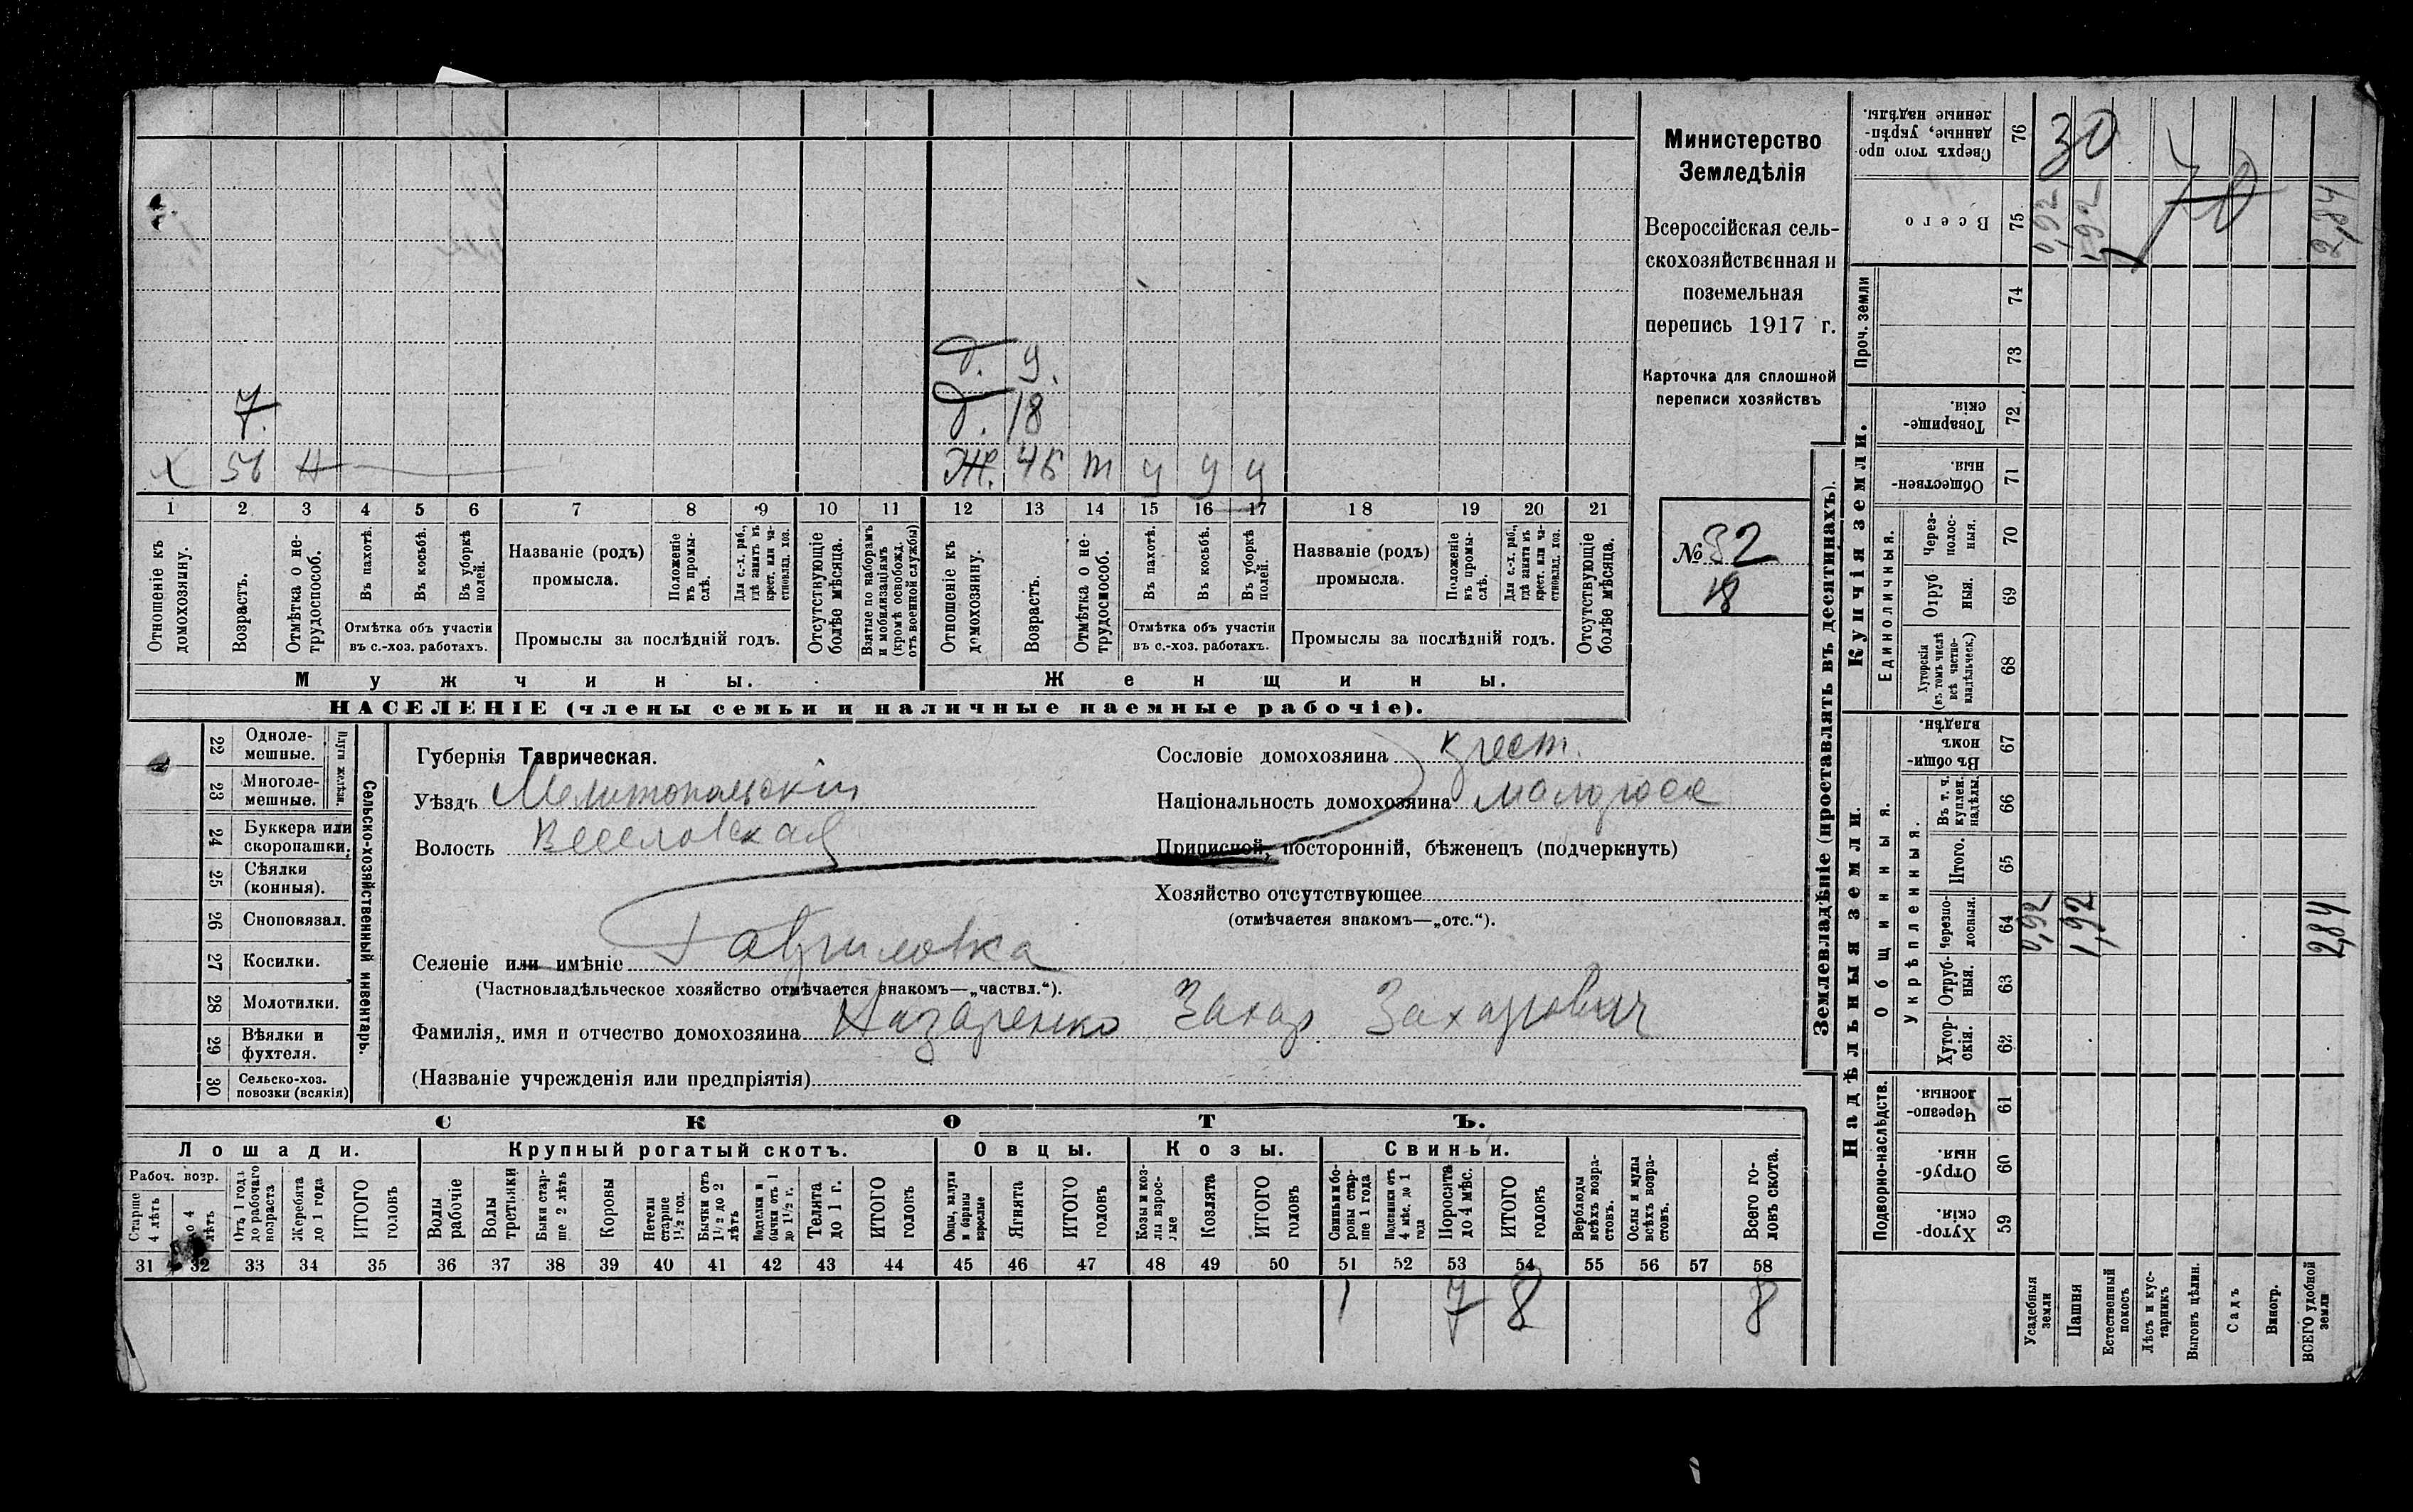 Министерство
Земледѣлія
Всероссійская сель-
скохозяйственная и
поземельная
перепись 1917 г.
Карточка для сплошной
переписи хозяйствъ
№ 32
18
д. 9.
7. д. 18
х 56 н Ж. 45 т у у у
1 2 3 4 5 6 7 8 9 10 11 12 13 14 15 16 17 18 19 20 21
Отношеніе къ домохозяину.
Возрастъ.
Отмѣтка о не-трудоспособ.
Въ пахотѣ.
Въ косьбѣ.
Въ уборкѣ полей.
Отмѣтка объ участіи
въ с.-хоз. работахъ.
Названіе (родъ)
промысла.
Положеніе въ промы-слѣ.
Для с.-х. раб., гдѣ занятъ въ крест. или ча-стновлад. хоз.
Промыслы за послѣдній годъ.
Отсутствующіе болѣе мѣсяца.
Взятые по наборамъ и мобилизаціямъ (кромѣ освобожд. отъ военной службы)
Отношеніе къ домохозяину.
Возрастъ.
Отмѣтка о не-трудоспособ.
Въ пахотѣ.
Въ косьбѣ.
Въ уборкѣ полей.
Отмѣтка объ участіи
въ с.-хоз. работахъ.
Названіе (родъ)
промысла.
Положеніе въ промы-слѣ.
Для с.-х. раб., гдѣ занята въ крест. или ча-стновлад. хоз.
Промыслы за послѣдній годъ.
Отсутствующіе болѣе мѣсяца.
Мужчины. Женщины.
НАСЕЛЕНІЕ (члены семьи и наличные наемные рабочіе).
Сельско-хозяйственный инвентарь.
Плуги желѣзн.
22 Однолемешные.
23 Многолемешные.
24 Буккера или скоропашки.
25 Сѣялки (конныя).
26 Сноповязал.
27 Косилки.
28 Молотилки.
29 Вѣялки и фухтеля.
30 Сельско-хоз. повозки (всякія)
Губернія Таврическая.
Уѣздъ Мелитопольскій
Волость Веселовская
Селеніе или имѣніе Гавриловка
(Частновладѣльческое хозяйство отмѣчается знакомъ—„частвл.“).
Сословіе домохозяина крест.
Національность домохозяина малоросс
Приписной, посторонній, бѣженецъ (подчеркнуть)
Хозяйство отсутствующее
(отмѣчается знакомъ—„отс.“).
Фамилія, имя и отчество домохозяина Назаренко Захар Захарович
(Названіе учрежденія или предпріятія)
СКОТЪ.
Лошади. Крупный рогатый скотъ. Овцы. Козы. Свиньи.
Рабоч. возр.
Старше 4 лѣтъ
До 4 лѣтъ
Отъ 1 года до рабочаго возраста
Жеребята до 1 года
ИТОГО головъ
Волы рабочіе
Волы третьяки
Быки стар-ше 2 лѣтъ
Коровы
Нетели старше 1½ год.
Бычки отъ 1½ до 2 лѣтъ
Подтелки и бычки отъ 1 до 1½ г.
Телята до 1 г.
ИТОГО головъ
Овцы, валухи и бараны взрослые
Ягнята
ИТОГО головъ
Козы и коз-лы взрос-лые
Козлята
ИТОГО головъ
Свиньи и бо-ровы стар-ше 1 года
Подсвинки отъ 4 мѣс. до 1 года
Поросята до 4 мѣс.
ИТОГО головъ
Верблюды всѣхъ возра-стовъ.
Ослы и мулы всѣхъ возра-стовъ.
Всего го-ловъ скота.
31 32 33 34 35 36 37 38 39 40 41 42 43 44 45 46 47 48 49 50 51 52 53 54 55 56 57 58
1 7 8 8
Землевладѣніе (проставлять въ десятинахъ).
Купчія земли.
Надѣльныя земли.
Сверхъ того про-данные, укрѣп-ленные надѣлы. 76 30
Всего 75 0,92 1,92 70 2,84
Проч. земли 74
73
Товарище-скія. 72
Обществен-ныя. 71
Единоличныя.
Через-полос-ныя. 70
Отруб-ныя. 69
Хуторскія (въ томъ числѣ всѣ частно-владѣльческ.) 68
Общинныя.
Въ общи-номъ владѣн. 67
Укрѣпленныя.
Въ т. ч. куплен. надѣлы. 66
Итого. 65
Черезпо-лосныя. 64 0,92 1,92 2,84
Отруб-ныя. 63
Хутор-скія. 62
Подворно-наслѣдств.
Черезпо-лосныя. 61
Отруб-ныя. 60
Хутор-скія. 59
Усадебныя земли
Пашня
Естественный покосъ
Лѣсъ и кус-тарникъ
Выгонъ цѣлин.
Садъ
Виногр.
ВСЕГО удобной земли